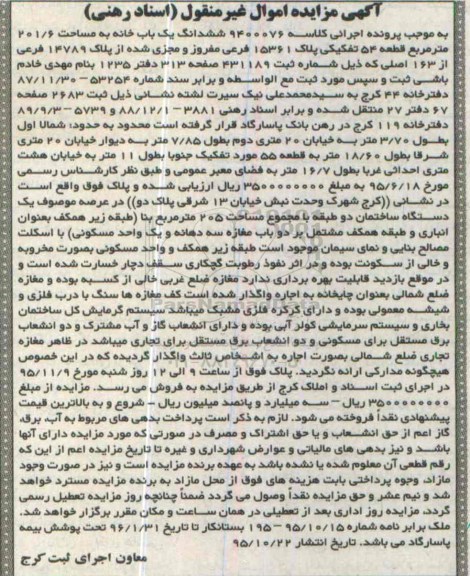 آگهی مزایده اموال غیر منقول (اسناد رهنی)
به موجب پرونده اجرائی کلاسه ۹۴۰۰۰۷۶ ششدانگ یک باب خانه به مساحت ۲۰۱/۶
مترمربع قطعه ۵۴ تفکیکی پلاک ۱۵۳۶۱ فرعی مفروز و مجزی شده از پلاک ۱۴۷۸۹ فرعی
از ۱۶۳ اصلی که ذیل شماره ثبت ۴۳۱۱۸۹ صفحه ۳۱۳ دفتر ۱۲۳۵ بنام مهدی خادم
باشی ثبت و سپس مورد ثبت مع الواسطه و برابر سند شماره ۵۳۲۵۴ – ۸۷/۱۱/۳۰
دفترخانه ۴۴ کرج به سیدمحمدعلی نیک سیرت لشته نشانی ذیل ثبت ۲۶۸۳ صفحه
۶۷ دفتر ۲۷ منتقل شده و برابر اسناد رهنی ۳۸۸۱ – ۸۸/۱۲/۸ و ۵۷۳۹ – ۸۹/۹/۳
دفترخانه ۱۱۹ کرج در رهن بانک پاسارگاد قرار گرفته است محدود به حدود: شمالا اول
بطول ۳/۷۰ متر به خیابان ۲۰ متری دوم بطول ۷/۸۵ متر به دیوار خیابان ۲۰ متری
شرقا بطول ۱۸/۶۰ متر به قطعه ۵۵ مورد تفکیک جنوبا بطول ۱۱ متر به خیابان هشت
متری احداثی غربا بطول ۱۶/۷ متر به فضای معبر عمومی و طبق نظر کارشناس رسمی
مورخ ۹۵/۶/۱۸ به مبلغ ۳۵۰۰۰۰۰۰۰۰ ریال ارزیابی شده و پلاک فوق واقع است
در نشانی ((کرج شهرک وحدت نبش خیابان ۱۳ شرقی پلاک دو)) در عرصه موصوف یک
دستگاه ساختمان دو طبقه با مجموع مساحت ۲۰۵ مترمربع بنا (طبقه زیر همکف بعنوان
انباری و طبقه همکف مشتمل بر دو باب مغازه سه دهانه و یک واحد مسکونی) با اسکلت
مصالح بنایی و نمای سیمان موجود است طبقه زیر همکف و واحد مسکونی بصورت مخروبه
و خالی از سکونت بوده و در اثر نفوذ رطوبت گچکاری سقف دچار خسارت شده است و
در موقع بازدید قابلیت بهره برداری ندارد مغازه ضلع غربی خالی از کسبه بوده و مغازه
ضلع شمالی بعنوان چاپخانه به اجاره واگذار شده است کف مغازه ها سنگ با درب فلزی و
شیشه معمولی بوده و دارای کرکره فلزی مشبک میباشد سیستم گرمایش کل ساختمان
بخاری و سیستم سرمایشی کولر آبی بوده و دارای انشعاب گاز و آب مشترک و دو انشعاب
برق مستقل برای مسکونی و دو انشعاب برق مستقل برای تجاری میباشد در ظاهر مغازه
تجاری ضلع شمالی بصورت اجاره به اشخاص ثالث واگذار گردیده که در این خصوص
هیچگونه مدارکی ارائه نگردید. پلاک فوق از ساعت ۹ الی ۱۲ روز شنبه مورخ ۹۵/۱۱/۹
در اجرای ثبت اسناد و املاک کرج از طریق مزایده به فروش می رسد. مزایده از مبلغ
۳۵۰۰۰۰۰۰۰۰ ریال – سه میلیارد و پانصد میلیون ریال – شروع و به بالاترین قیمت
پیشنهادی نقداً فروخته می شود. لازم به ذکر است پرداخت بدهی های مربوط به آب، برق،
گاز اعم از حق انشعاب و یا حق اشتراک و مصرف در صورتی که مورد مزایده دارای آنها
باشد و نیز بدهی های مالیاتی و عوارض شهرداری و غیره تا تاریخ مزایده اعم از این که
رقم قطعی آن معلوم شده یا نشده باشد به عهده برنده مزایده است و نیز در صورت وجود
مازاد، وجوه پرداختی بابت هزینه های فوق از محل مازاد به برنده مزایده مسترد خواهد
شد و نیم عشر و حق مزایده نقداً وصول می گردد ضمناً چنانچه روز مزایده تعطیل رسمی
گردد، مزایده روز اداری بعد از تعطیلی در همان ساعت و مکان مقرر برگزار خواهد شد.
ملک برابر نامه شماره ۱۹۵ – ۹۵/۱۰/۱۵ بستانکار تا تاریخ ۹۶/۱/۳۱ تحت پوشش بیمه
پاسارگاد می باشد. تاریخ انتشار ۹۵/۱۰/۲۲
معاون اجرای ثبت کرج